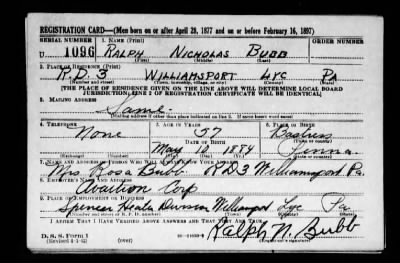 REGISTRATION CARD—(Men born on or after April 28, 1877 and on or before February 16, 1897)
SERIAL NUMBER 1. NAME (Print) ORDER NUMBER
U 1096 RALPH NICHOLAS BUBB
(First) (Middle) (Last)
2. PLACE OF RESIDENCE (Print)
R.D. 3 WILLIAMSPORT LYC PA
(Number and street) (Town, township, village, or city) (County) (State)
[THE PLACE OF RESIDENCE GIVEN ON THE LINE ABOVE WILL DETERMINE LOCAL BOARD
JURISDICTION; LINE 2 OF REGISTRATION CERTIFICATE WILL BE IDENTICAL]
3. MAILING ADDRESS
Same
[Mailing address if other than place indicated on line 2. If same insert word same]
4. TELEPHONE 5. AGE IN YEARS 6. PLACE OF BIRTH
None 57 Bastress
DATE OF BIRTH (Town or county)
May 10 1884 Penna.
(Exchange) (Number) (Mo.) (Day) (Yr.) (State or country)
7. NAME AND ADDRESS OF PERSON WHO WILL ALWAYS KNOW YOUR ADDRESS
Mrs. Rosa Bubb R D 3 Williamsport Pa.
8. EMPLOYER'S NAME AND ADDRESS
Aviation Corp
9. PLACE OF EMPLOYMENT OR BUSINESS
Spencer Heater Division Williamsport Lyc Pa.
(Number and street or R. F. D. number) (Town) (County) (State)
I AFFIRM THAT I HAVE VERIFIED ABOVE ANSWERS AND THAT THEY ARE TRUE.
D. S. S. Form 1 Ralph N. Bubb
(over)